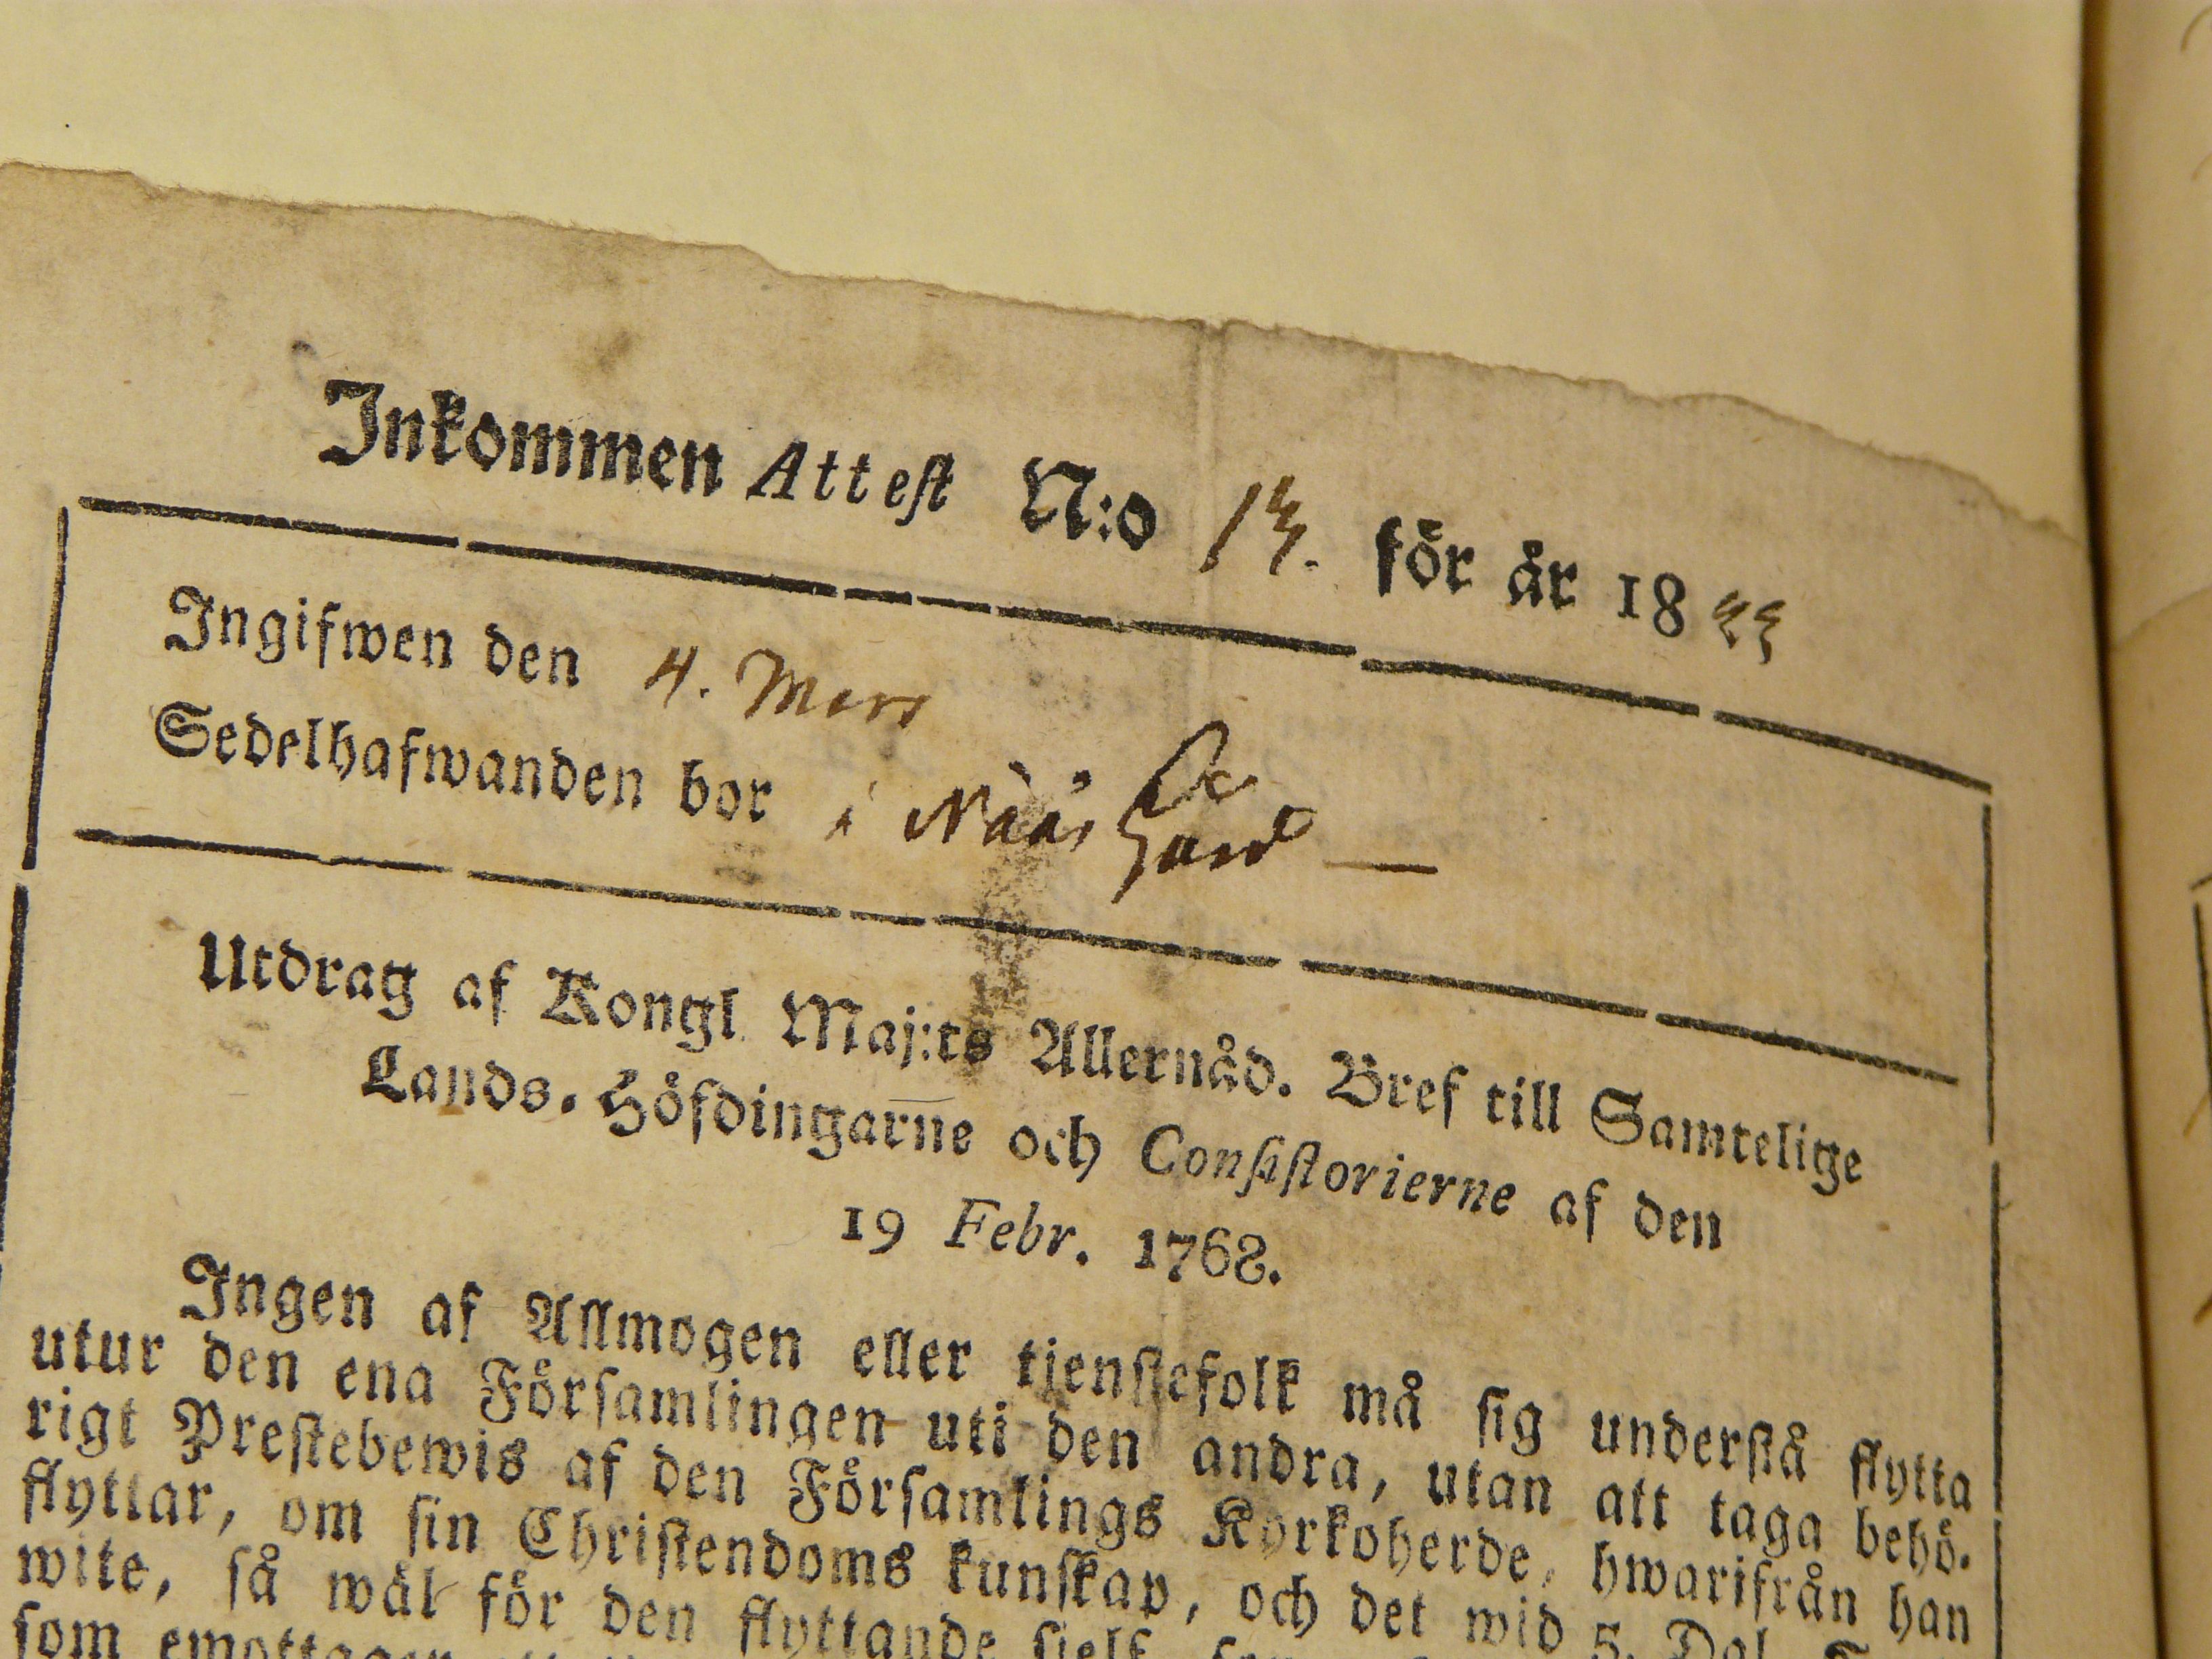 Inkommen Attest N:o 13. för år 1833
Ingifwen den 4. Mars
Sedelhafwanden bor i Nääs
Utdrag af Kongl Maj:ts Allernåd. Bref till Samtelige
Lands-Höfdingarne och Consistorierne af den
19 Febr. 1768.
Ingen af Allmogen eller tjenstefolk må sig understå flytta
utur den ena Församlingen uti den andra, utan att taga behö-
rigt Prestebewis af den Församlings Kyrkoherde, hwarifrån han
flyttar, om sin Christendoms kunskap, och det wid 5. Dal.
wite, så wäl för den flyttande sielf
som emottager